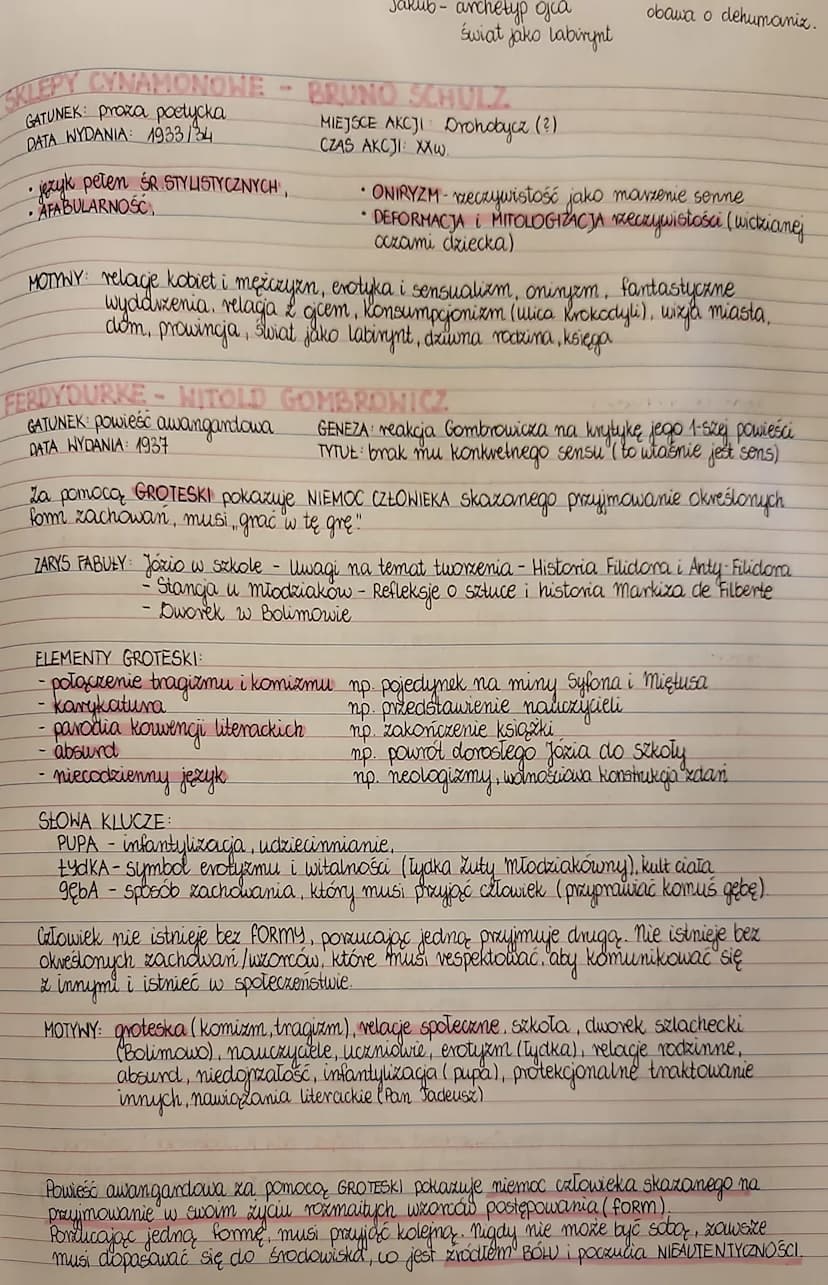 Jakub - archetyp ojca
świat jako labirynt
obawa o dehumaniz.
SKLEPY CYNAMONOWE - BRUNO SCHULZ
GATUNEK: proza poetycka
DATA WYDANIA: 1933/34
MIEJSCE AKCJI: Drohobycz (?)
CZAS AKCJI: XXw.
• język pełen ŚR. STYLISTYCZNYCH,
• AFABULARNOŚĆ,
• ONIRYZM - rzeczywistość jako marzenie senne
• DEFORMACJA i MITOLOGIZACJA rzeczywistości (widzianej
oczami dziecka)
MOTYWY: relacje kobiet i mężczyzn, erotyka i sensualizm, oniryzm, fantastyczne
wydarzenia, relacja z ojcem, konsumpcjonizm (ulica Krokodyli), wizja miasta,
dom, prowincja, świat jako labirynt, dziwna rodzina, księga
FERDYDURKE - WITOLD GOMBROWICZ
GATUNEK: powieść awangardowa
DATA WYDANIA: 1937
GENEZA: reakcja Gombrowicza na krytykę jego 1-szej powieści
TYTUŁ: brak mu konkretnego sensu (to właśnie jest sens)
Za pomocą GROTESKI pokazuje NIEMOC CZŁOWIEKA skazanego przyjmowanie określonych
form zachowań, musi „grać w tę grę"
ZARYS FABUŁY: Józio w szkole - Uwagi na temat tworzenia - Historia Filidora i Anty-Filidora
- Stancja u młodziaków - Refleksje o sztuce i historia Markiza de Filberte
- Dworek w Bolimowie
ELEMENTY GROTESKI:
- połączenie tragizmu i komizmu np. pojedynek na miny Syfona i Miętusa
- karykatura np. przedstawienie nauczycieli
- parodia konwencji literackich np. zakończenie książki
- absurd np. powrót dorosłego Józia do szkoły
- niecodzienny język np. neologizmy, wolnościowa konstrukcja zdań
SŁOWA KLUCZE:
PUPA - infantylizacja, udziecinnianie,
ŁYDKA - symbol erotyzmu i witalności (łydka Zuty Młodziakówny), kult ciała
GĘBA - sposób zachowania, który musi przyjąć człowiek (przyprawiać komuś gębę)
Człowiek nie istnieje bez FORMY, porzucając jedną przyjmuje drugą. Nie istnieje bez
określonych zachowań/wzorców, które musi respektować, aby komunikować się
z innymi i istnieć w społeczeństwie.
MOTYWY: groteska (komizm, tragizm), relacje społeczne, szkoła, dworek szlachecki
(Bolimowo), nauczyciele, uczniowie, erotyzm (łydka), relacje rodzinne,
absurd, niedojrzałość, infantylizacja (pupa), protekcjonalne traktowanie
innych, nawiązania literackie (Pan Tadeusz)
Powieść awangardowa za pomocą GROTESKI pokazuje niemoc człowieka skazanego na
przyjmowanie w swoim życiu rozmaitych wzorców postępowania (FORM).
Porzucając jedną formę, musi przyjąć kolejną. Nigdy nie może być sobą, zawsze
musi dopasować się do środowiska, co jest źródłem BÓLU i poczucia NIEAUTENTYCZNOŚCI.